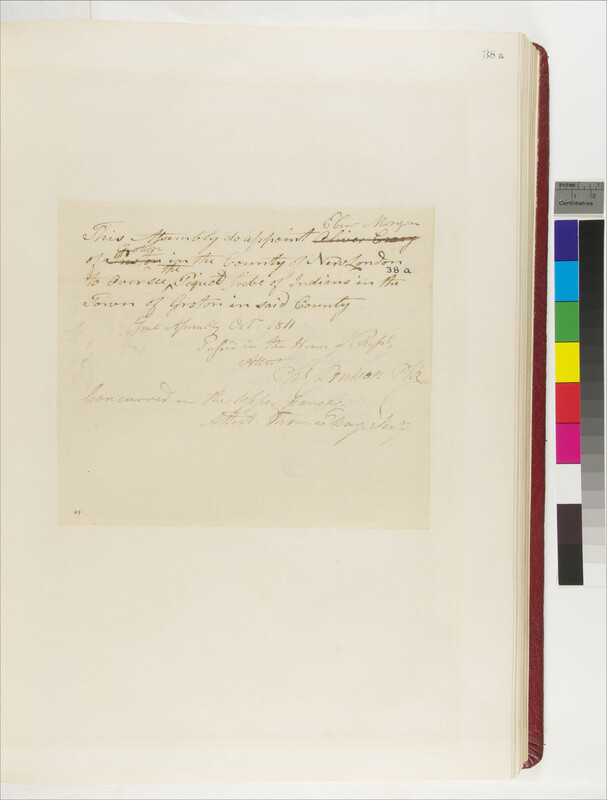 38 a
Ebnr Morgan
This Assembly do appoint Oliver Crary
Groton
of Preston in the County of New London
38 a
the
to oversee ^ Piquot tribe of Indians in the
Town of Groton in said County
Genl Assembly Oct. 1811
Passed in the House of Reps.
Attest
Chs Denison Clk
Concurred in the Upper House
Attest Thomas Day Secy
Centimetres